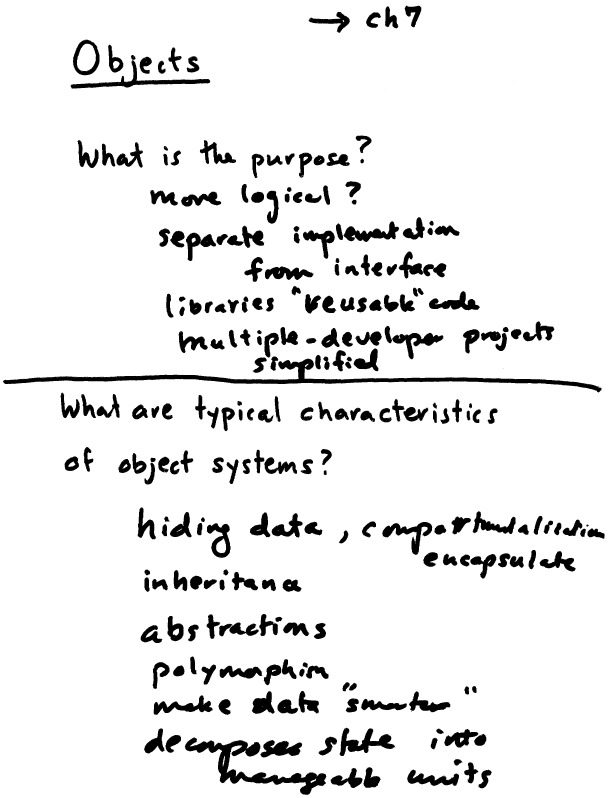 → ch7
Objects
What is the purpose?
more logical?
separate implementation
from interface
libraries "reusable" code
multiple-developer projects
simplified
What are typical characteristics
of object systems?
hiding data, compartmentalization
encapsulate
inheritance
abstractions
polymorphism
make data "smarter"
decomposes state into
manageable units